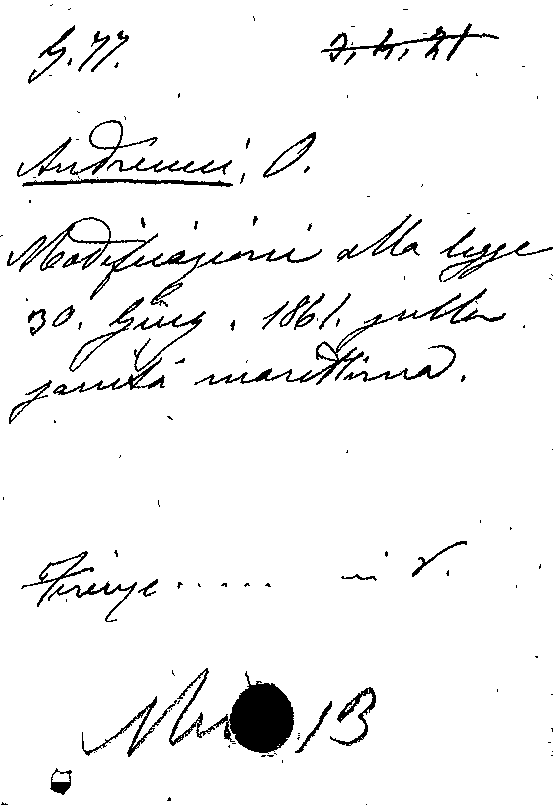 G. 77. 2, 4, 21
Andreucci, O.
Modificazioni alla legge
30. Giug. 1861. sulla
sanità marittima.
Firenze ..... in 8.
13